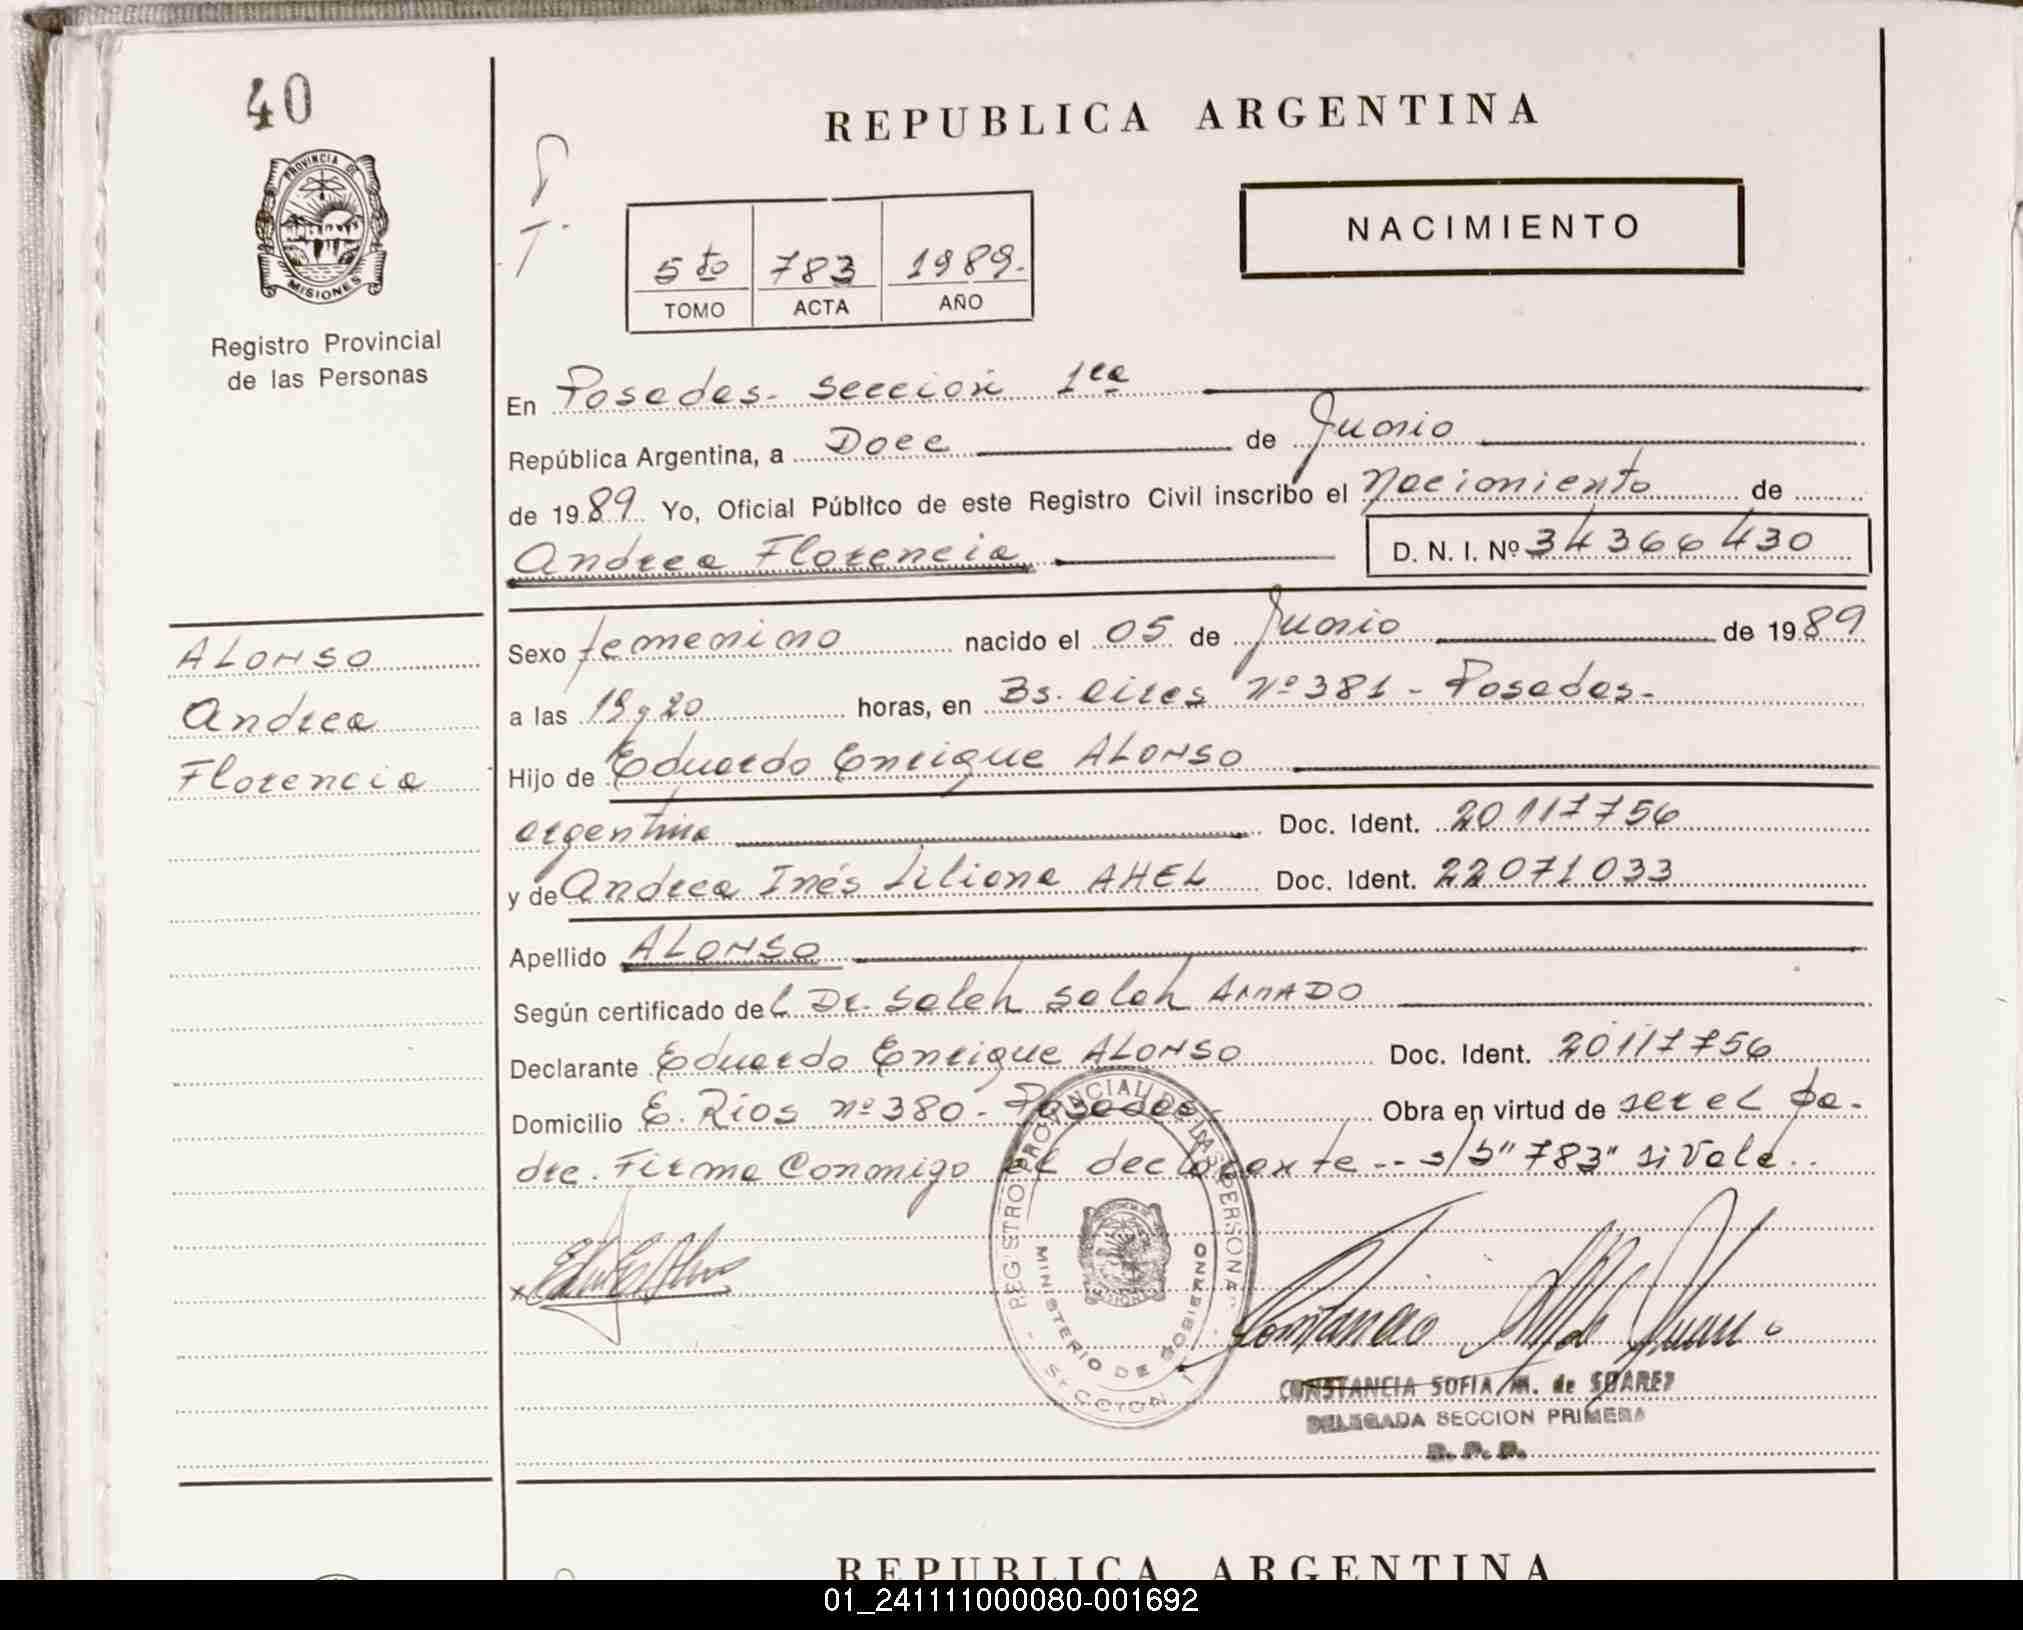 40
PROVINCIA DE
MISIONES
Registro Provincial
de las Personas
REPUBLICA ARGENTINA
NACIMIENTO
5to 783 1989.
TOMO ACTA AÑO
En Posadas- Sección 1ra
República Argentina, a Doce de Junio
de 1989 Yo, Oficial Público de este Registro Civil inscribo el Nacimiento de
Andrea Florencia D. N. I. Nº 34366430
ALONSO
Andrea
Florencia
Sexo femenino nacido el 05 de Junio de 1989
a las 19 y 20 horas, en Bs. Aires Nº 381 - Posadas-
Hijo de Eduardo Enrique ALONSO
argentina Doc. Ident. 20117756
y de Andrea Inés Liliana AHEL Doc. Ident. 22071033
Apellido ALONSO
Según certificado del Dr. Saleh Saleh AMADO
Declarante Eduardo Enrique ALONSO Doc. Ident. 20117756
Domicilio E. Rios nº 380- Posadas- Obra en virtud de ser el pa-
dre. Firma Conmigo el declarante-- s/b "783" si Vale..
REGISTRO PROVINCIAL DE LAS PERSONAS
MINISTERIO DE GOBIERNO
SECCION 1
CONSTANCIA SOFIA M. de SUAREZ
DELEGADA SECCION PRIMERA
R. P. P.
REPUBLICA ARGENTINA
01_241111000080-001692